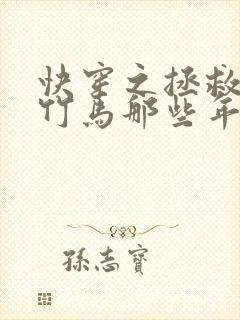 快穿之拯救
竹马那些年
孫志寶